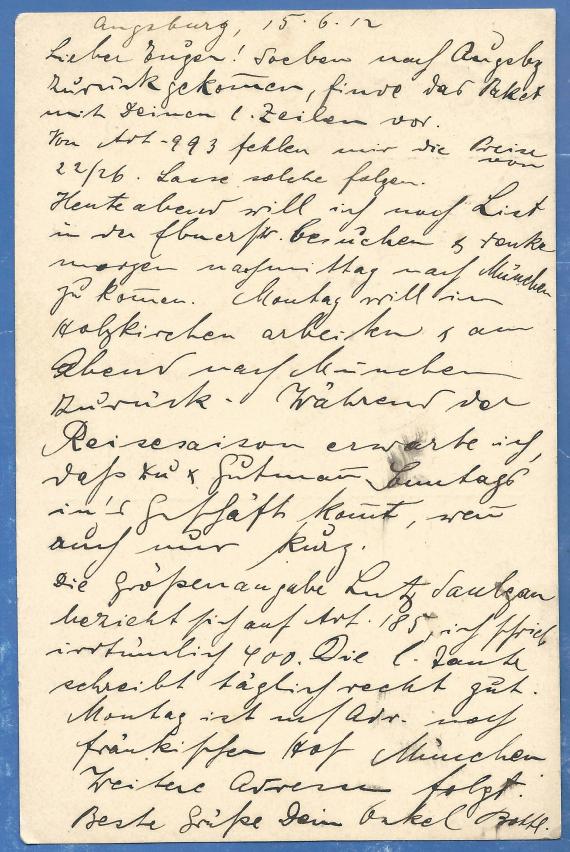 Augsburg, 15.6.12
Lieber Eugen! Soeben nach Augsbg
zurückgekom̅en, finde das Paket
mit Deinen l. Zeilen vor.
Von Art-993 fehlen mir die Preise
von
22/26. Lasse solche folgen.
Heute abend will ich noch List
in der besuchen & denke
morgen nachmittag nach München
zu kom̅en. Montag will in
Holzkirchen arbeiten & am
Abend nach München
zurück - Während der
Reisesaison erwarte ich,
daß Du & Gutman̅ Sonntags
in's Geschäft kom̅t, wen̅
auch nur kurz.
Die Größenangabe Lutz Saulgau
bezieht sich auf Art. 185, ich schrieb
irrtümlich 400. Die l. Tante
schreibt täglich recht gut.
Montag ist m/ Adr. noch
fränkischen Hof München
Weitere Adressen folgt.
Beste Grüße Dein Onkel